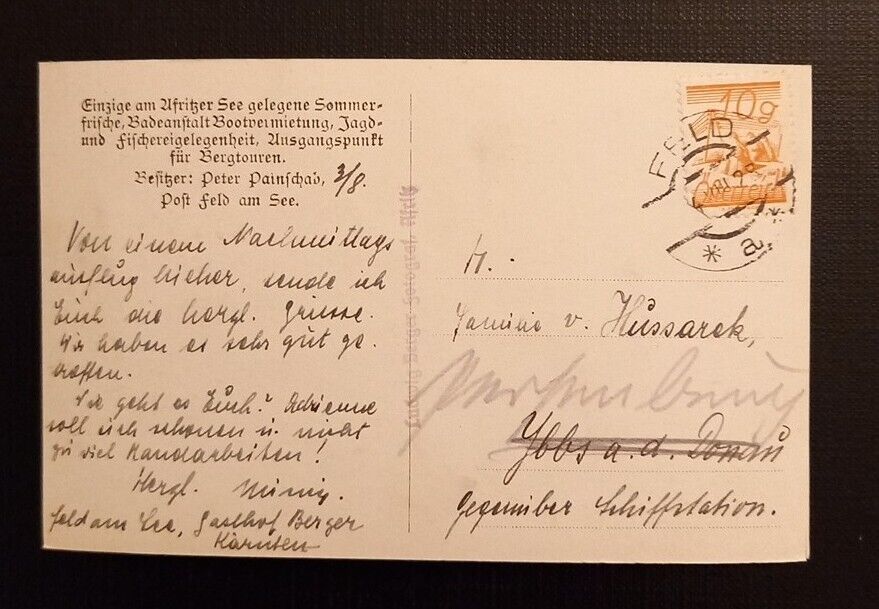 Einzige am Afritzer See gelegene Sommer-
frische, Badeanstalt Bootvermietung, Jagd-
und Fischereigelegenheit, Ausgangspunkt
für Bergtouren.
Besitzer: Peter Painschab,
Post Feld am See.
3/8.
Von einem Nachmittags
ausflug hieher, sende ich
Euch die herzl. Grüsse.
Wir haben es sehr gut ge
troffen.
Wie geht es Euch? Adrienne
soll sich schonen u. nicht
zu viel Handarbeiten!
Herzl.
Feld am See, Gasthof Berger
Kärnten
Ludwig Berger, Fotograf, Afritz
10g
Österreich
FELD
* a *
H.
Familie v. Hussarek,
Persenbeug
Ybbs a. d. Donau
gegenüber Schiffstation.